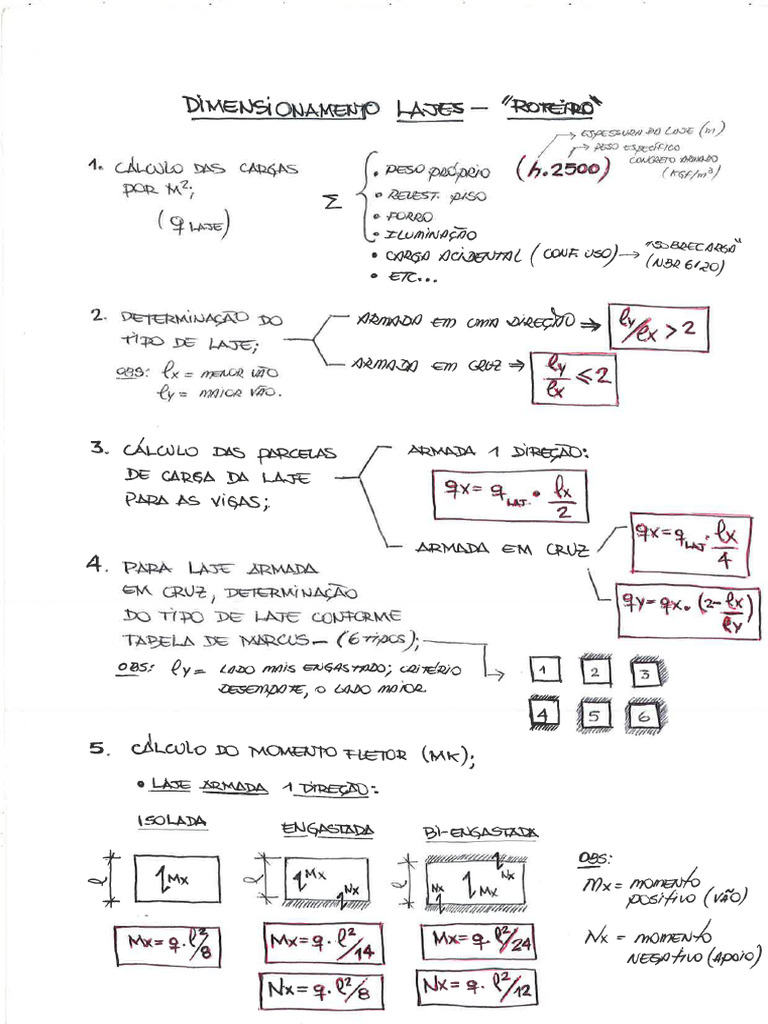 DIMENSIONAMENTO LAJES - "ROTEIRO"
1. CÁLCULO DAS CARGAS
POR M²;
(q LAJE)
Σ
• PESO PRÓPRIO (h.2500)
→ ESPESSURA DA LAJE (m)
→ PESO ESPECÍFICO
CONCRETO ARMADO
(KGF/m³)
• REVEST. PISO
• FORRO
• ILUMINAÇÃO
• CARGA ACIDENTAL (CONF. USO) → "SOBRECARGA"
(NBR 6120)
• ETC...
2. DETERMINAÇÃO DO
TIPO DE LAJE;
OBS: lx = MENOR VÃO
ly = MAIOR VÃO.
ARMADA EM UMA DIREÇÃO ⇒ ly/lx > 2
ARMADA EM CRUZ ⇒ ly/lx ≤ 2
3. CÁLCULO DAS PARCELAS
DE CARGA DA LAJE
PARA AS VIGAS;
ARMADA 1 DIREÇÃO:
qx = q LAJ. • lx/2
ARMADA EM CRUZ
qx = q LAJ. • lx/4
qy = qx. (2 - lx/ly)
4. PARA LAJE ARMADA
EM CRUZ, DETERMINAÇÃO
DO TIPO DE LAJE CONFORME
TABELA DE MARCUS - (6 TIPOS);
OBS: ly = LADO MAIS ENGASTADO; CRITÉRIO
DESEMPATE, O LADO MAIOR
1 2 3
4 5 6
5. CÁLCULO DO MOMENTO FLETOR (MK);
• LAJE ARMADA 1 DIREÇÃO:
ISOLADA
l
Mx
Mx = q. l²/8
ENGASTADA
l
Mx
Nx
Mx = q. l²/14
Nx = q. l²/8
BI-ENGASTADA
l
Nx
Mx
Nx
Mx = q. l²/24
Nx = q. l²/12
OBS:
Mx = MOMENTO
POSITIVO (VÃO)
Nx = MOMENTO
NEGATIVO (APOIO)